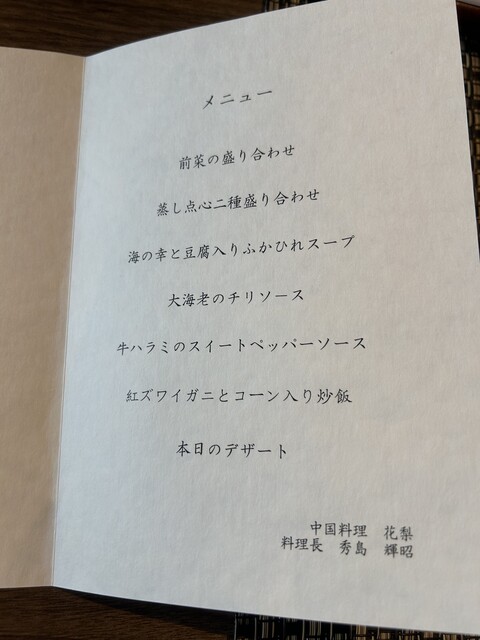 メニュー
前菜の盛り合わせ
蒸し点心二種盛り合わせ
海の幸と豆腐入りふかひれスープ
大海老のチリソース
牛ハラミのスイートペッパーソース
紅ズワイガニとコーン入り炒飯
本日のデザート
中国料理　花梨
料理長　秀島　輝昭